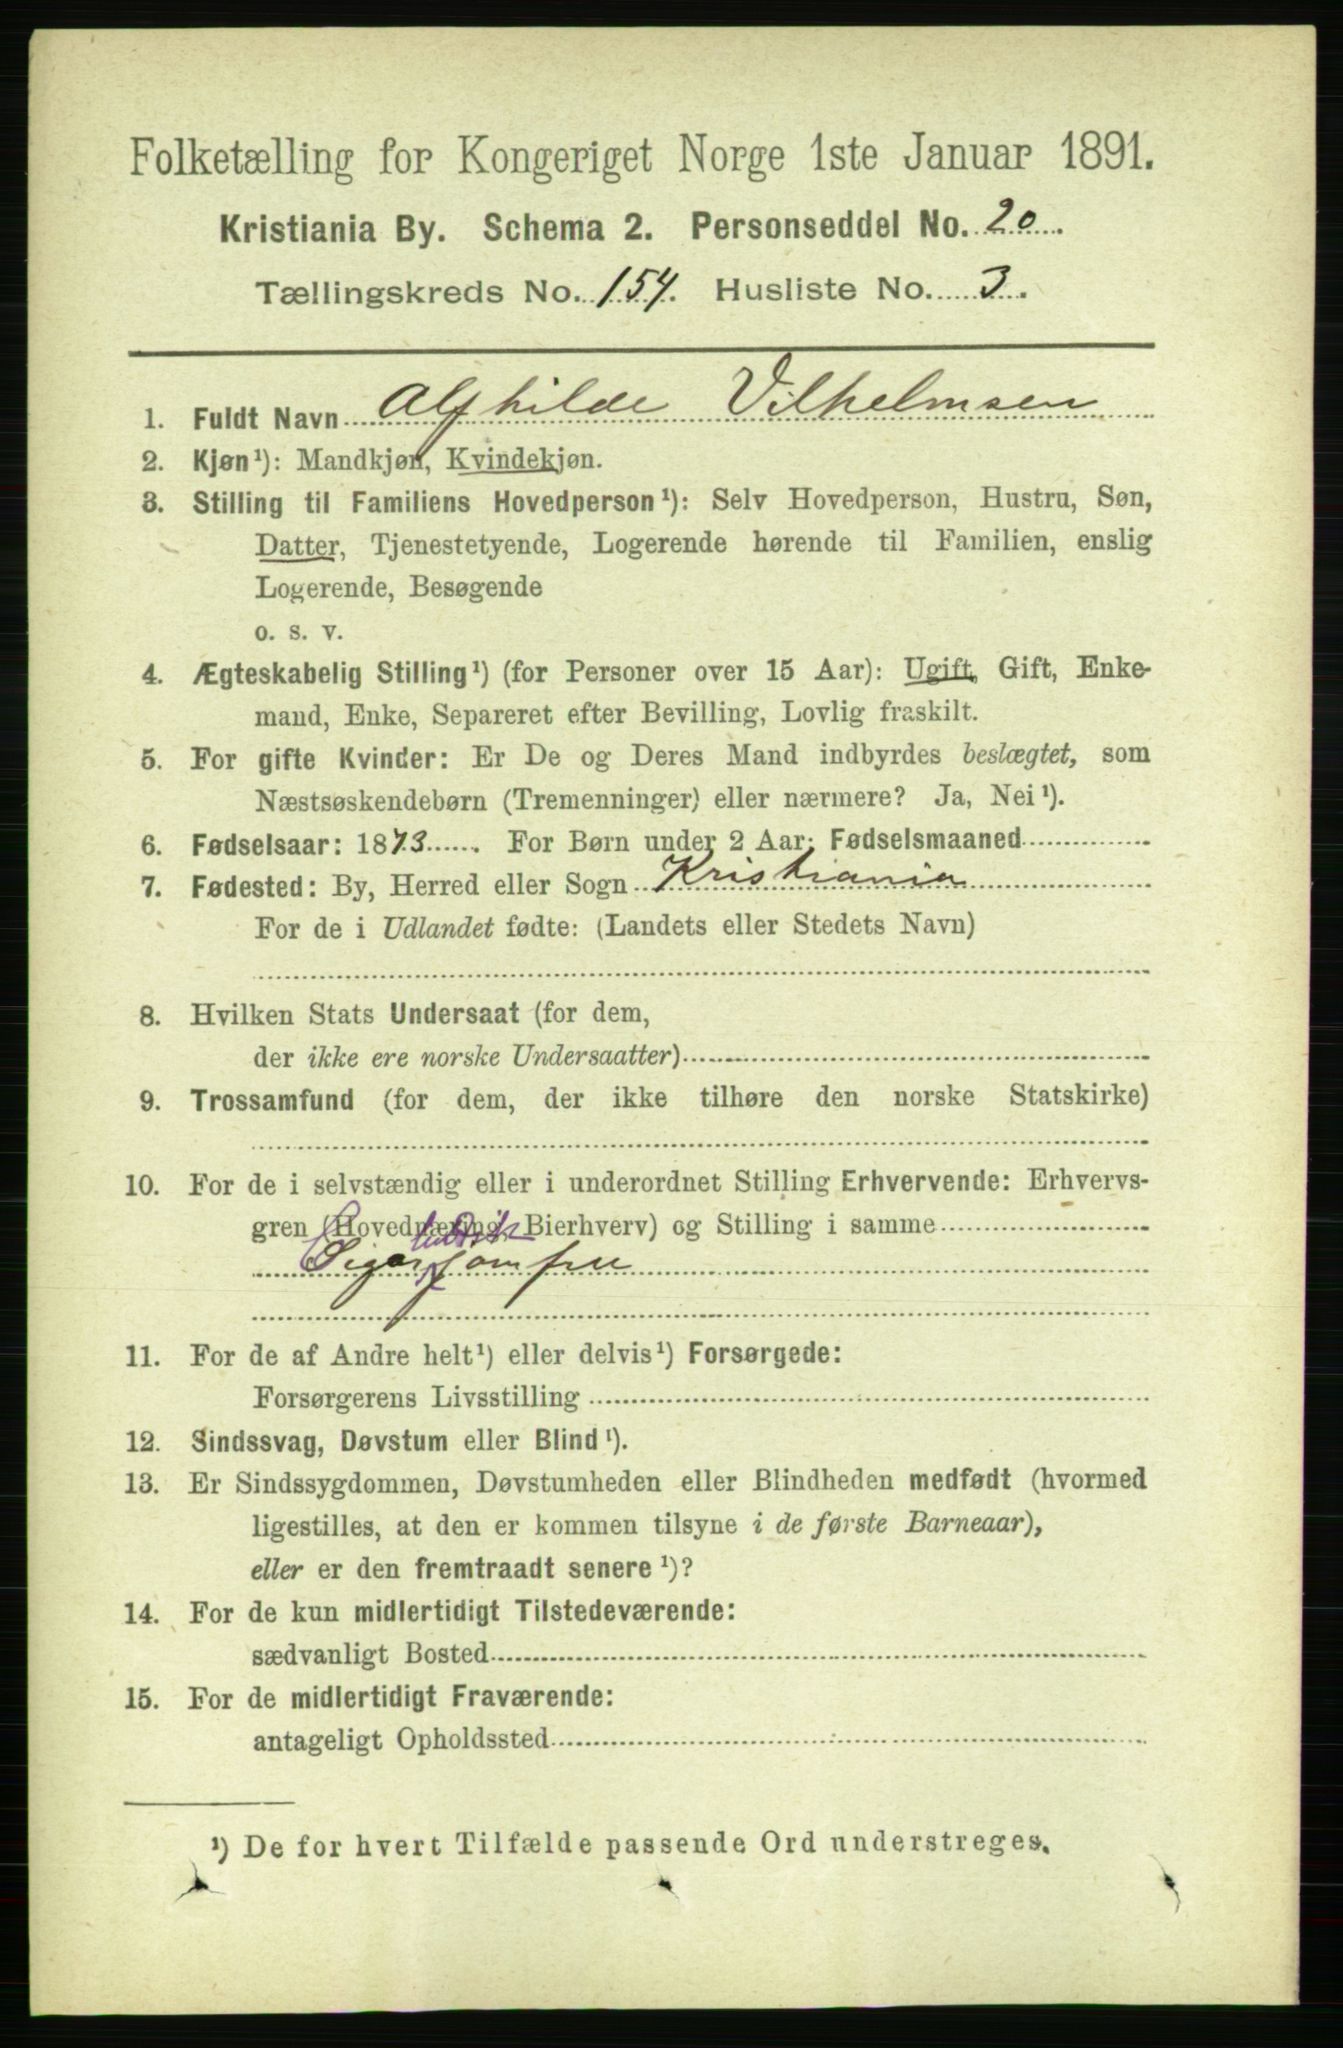 Folketælling for Kongeriget Norge 1ste Januar 1891.
Kristiania By. Schema 2. Personseddel No. 20.
Tællingskreds No. 154. Husliste No. 3.
1. Fuldt Navn Alfhilde Vilhelmsen
2. Kjøn¹): Mandkjøn, Kvindekjøn.
3. Stilling til Familiens Hovedperson¹): Selv Hovedperson, Hustru, Søn,
Datter, Tjenestetyende, Logerende hørende til Familien, enslig
Logerende, Besøgende
o. s. v.
4. Ægteskabelig Stilling¹) (for Personer over 15 Aar): Ugift, Gift, Enke-
mand, Enke, Separeret efter Bevilling, Lovlig fraskilt.
5. For gifte Kvinder: Er De og Deres Mand indbyrdes beslægtet, som
Næstsøskendebørn (Tremenninger) eller nærmere? Ja, Nei¹).
6. Fødselsaar: 1873. For Børn under 2 Aar: Fødselsmaaned
7. Fødested: By, Herred eller Sogn Kristiania
For de i Udlandet fødte: (Landets eller Stedets Navn)
8. Hvilken Stats Undersaat (for dem,
der ikke ere norske Undersaatter)
9. Trossamfund (for dem, der ikke tilhøre den norske Statskirke)
10. For de i selvstændig eller i underordnet Stilling Erhvervende: Erhvervs-
gren (Hovednæring, Bierhverv) og Stilling i samme
Sigarjomfru
11. For de af Andre helt¹) eller delvis¹) Forsørgede:
Forsørgerens Livsstilling
12. Sindssvag, Døvstum eller Blind¹).
13. Er Sindssygdommen, Døvstumheden eller Blindheden medfødt (hvormed
ligestilles, at den er kommen tilsyne i de første Barneaar),
eller er den fremtraadt senere¹)?
14. For de kun midlertidigt Tilstedeværende:
sædvanligt Bosted
15. For de midlertidigt Fraværende:
antageligt Opholdssted
¹) De for hvert Tilfælde passende Ord understreges.